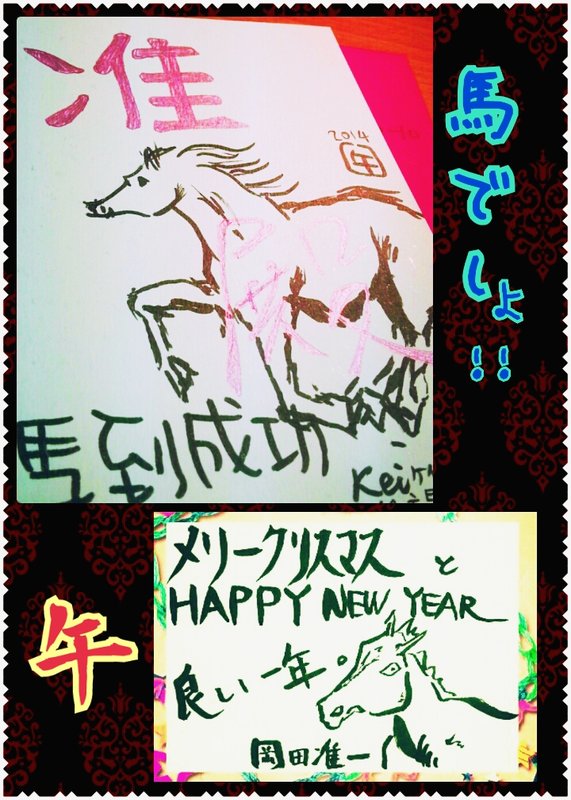 准
2014
午
馬到成功
Kei
馬でしょ!!
午
メリークリスマス と
HAPPY NEW YEAR
良い一年。
岡田准一